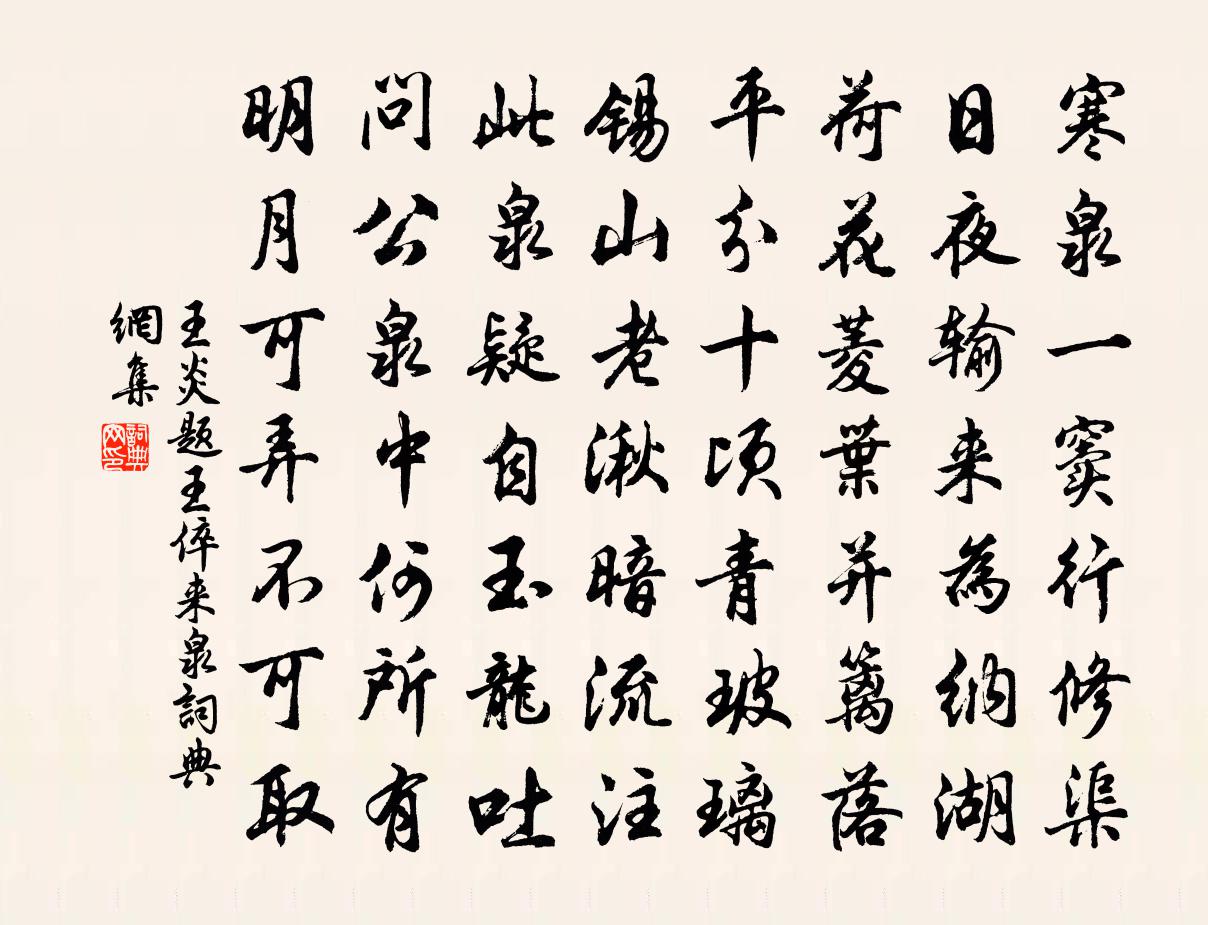 寒泉一窦行修渠
日夜输来為纳湖
荷花菱葉并篱落
平分十顷青玻璃
锡山老湫暗流注
此泉疑自玉龍吐
问公泉中何所有
明月可弄不可取
王炎题王倅来泉詞典
網集
詞典网印